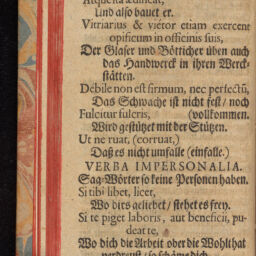 Atque ita ædificat,
Und also bauet er.
Vitriarius & vietor etiam exercent
opificium in officinis suis,
Der Glaser und Bötticher üben auch
das Handwerck in ihren Werck-
stätten.
Debile non est firmum, nec perfectũ,
Das Schwache ist nicht fest / noch
Fulcitur fulcris, (vollkommen.
Wird gestützet mit der Stützen.
Ut ne ruat, (corruat,)
Daß es nicht umfalle (einfalle.)
VERBA IMPERSONALIA.
Sag-Wörter so keine Personen haben.
Si tibi libet, licet,
Wo dirs geliebet / stehet es frey.
Si te piget laboris, aut beneficii, pu-
deat te,
Wo dich die Arbeit oder die Wohlthat
verdreust / so schäme dich